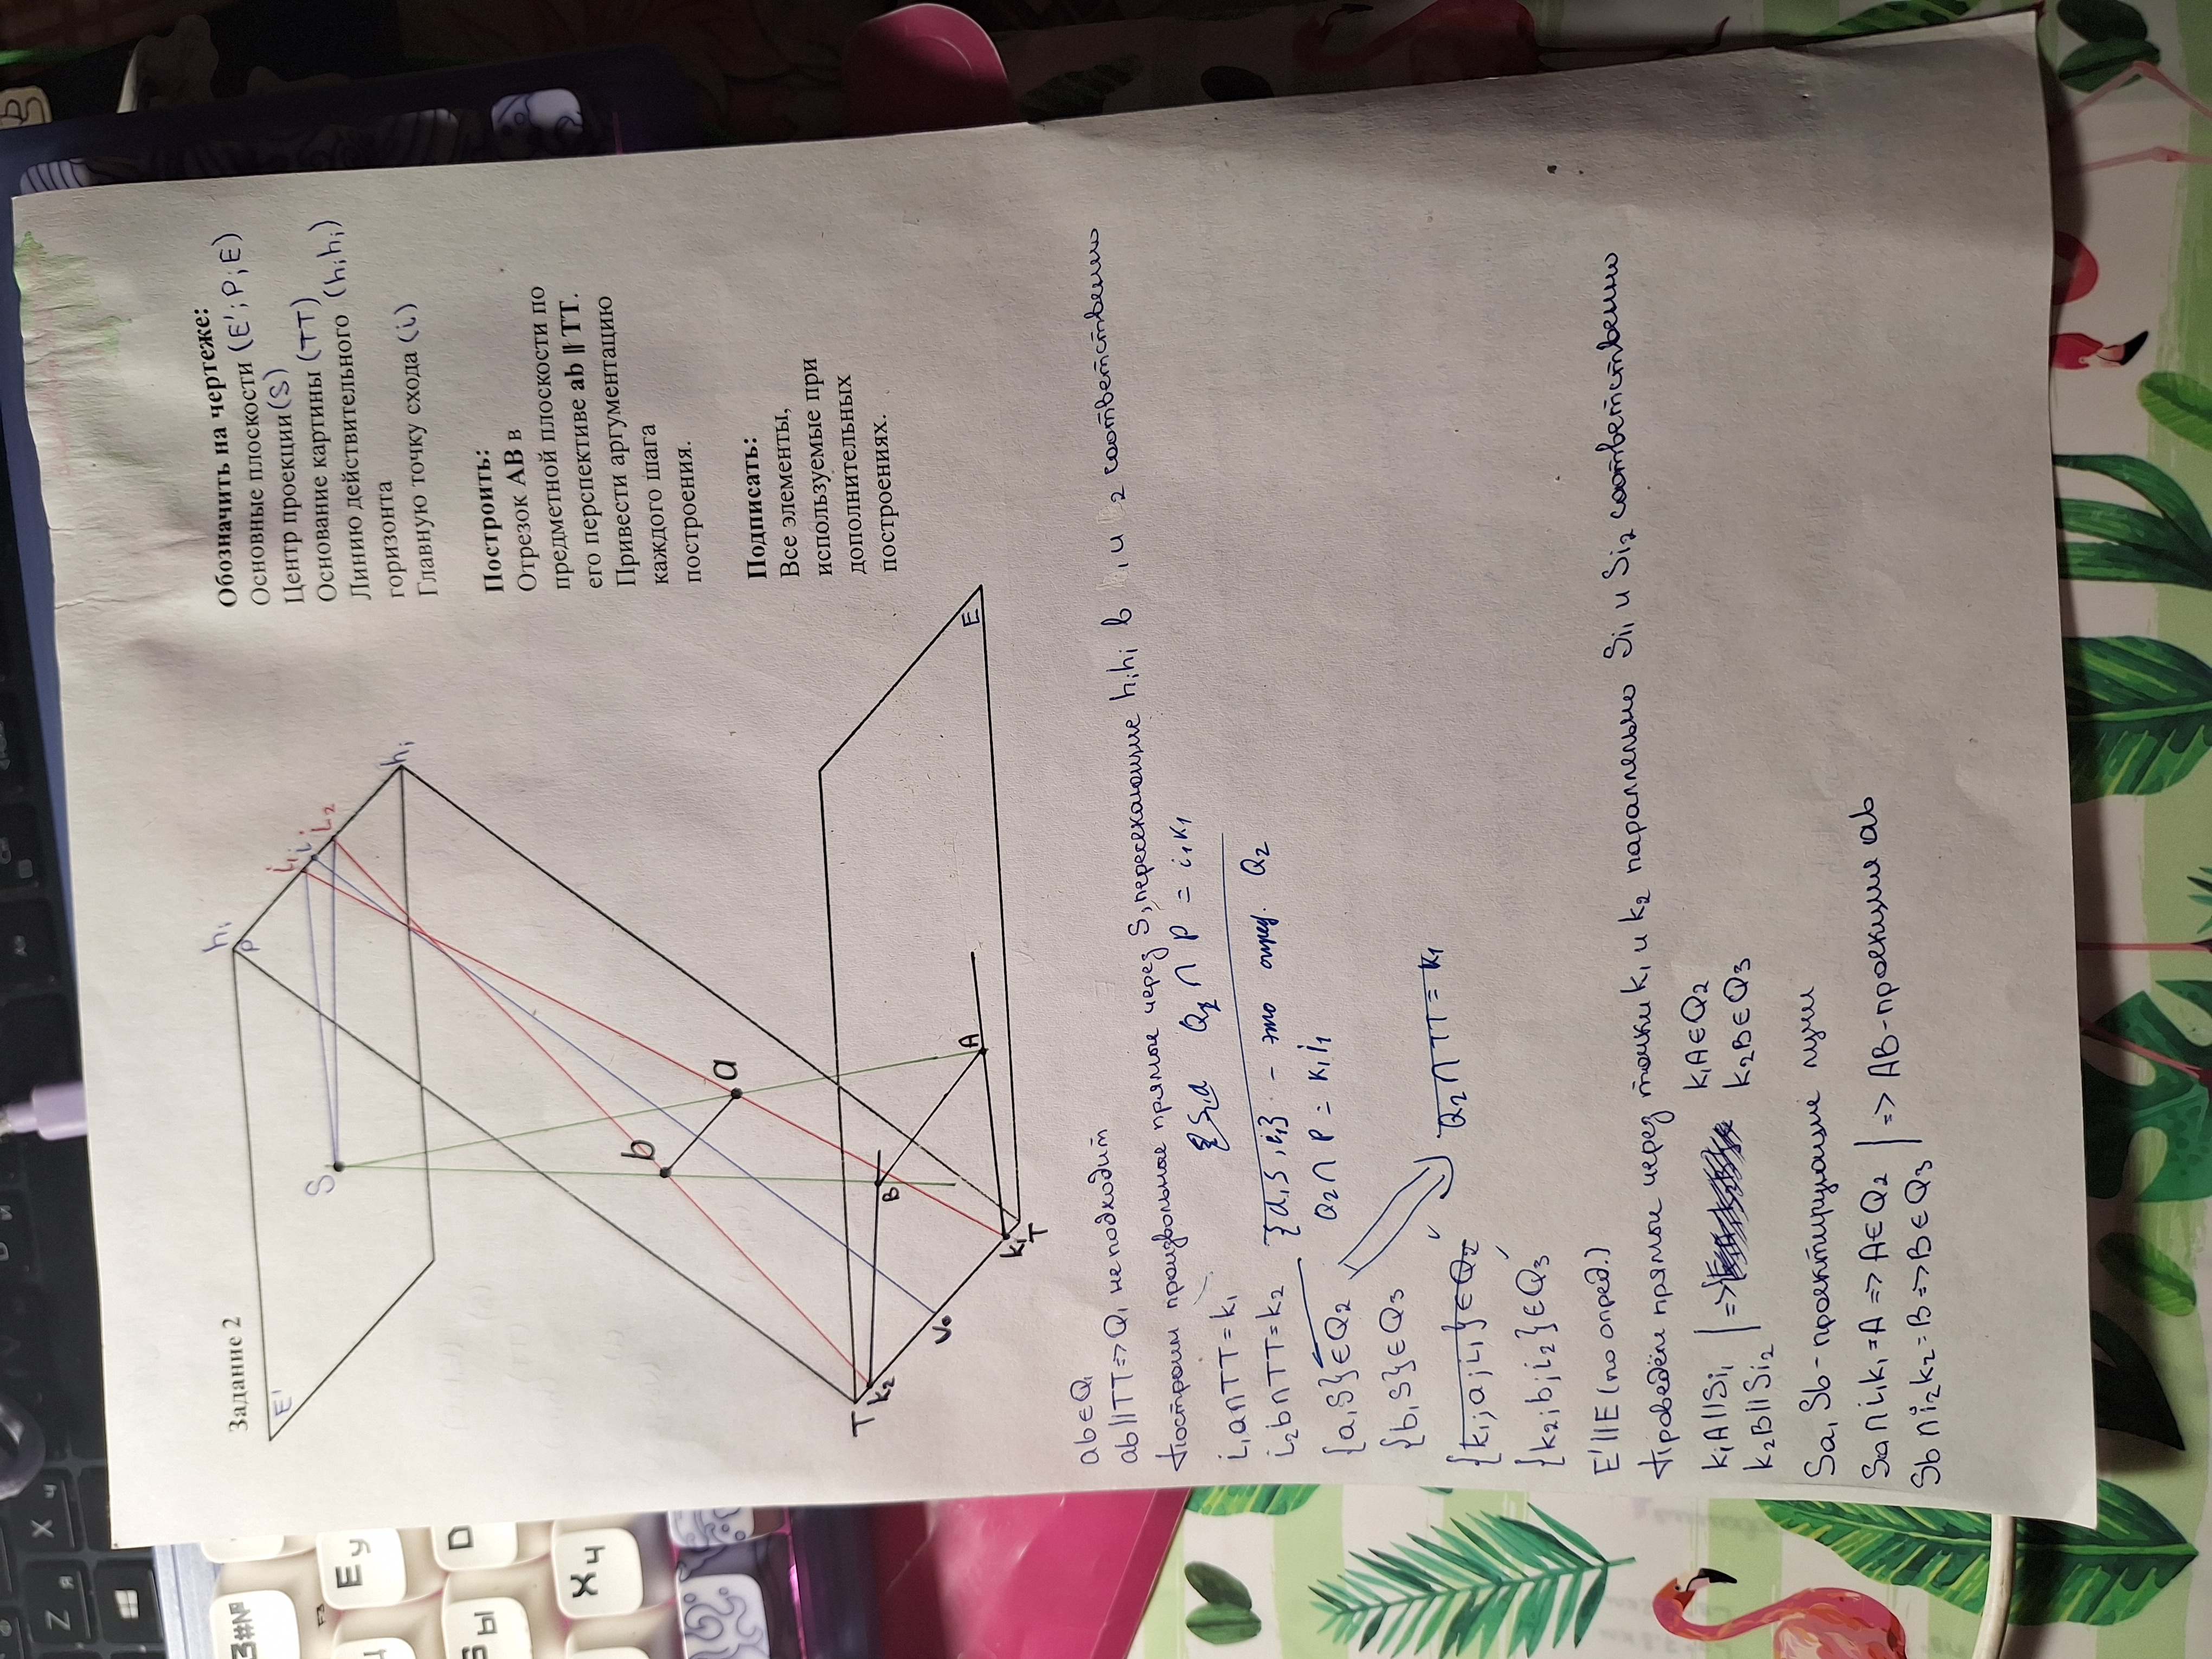 Задание 2
Обозначить на чертеже:
Основные плоскости (E'; P; E)
Центр проекции (S)
Основание картины (TT)
Линию действительного (hihi)
горизонта
Главную точку схода (i)
Построить:
Отрезок AB в
предметной плоскости по
его перспективе ab || TT.
Привести аргументацию
каждого шага
построения.
Подписать:
Все элементы,
используемые при
дополнительных
построениях.
E'
hi
P
i₁
i
i₂
hi
S
b
a
T
k₂
V₀
k₁
T
B
A
E
ab ∈ Q₁
ab || TT => Q₁ не подходит
Построим произвольные прямые через S, пересекающие hihi в i₁ и i₂ соответственно
i₁a ∩ TT = k₁
Q₂ ∩ P = i₁k₁
i₂b ∩ TT = k₂
{a, S, i₁} - это опред. Q₂
{a, S} ∈ Q₂
Q₂ ∩ P = k₁i₁
{b, S} ∈ Q₃
{k₁; a; i₁} ∈ Q₂
Q₂ ∩ TT = k₁
{k₂; b; i₂} ∈ Q₃
E' || E (по опред.)
Проведём прямые через точки k₁ и k₂ параллельно Si₁ и Si₂ соответственно
k₁A || Si₁ | => k₁A ∈ Q₂
k₂B || Si₂ | k₂B ∈ Q₃
Sa, Sb - проецирующие лучи
Sa ∩ i₁k₁ = A => A ∈ Q₂ | => AB - проекция ab
Sb ∩ i₂k₂ = B => B ∈ Q₃
З#№
F3
Е у
Х ч
S ы
Z я
X ч